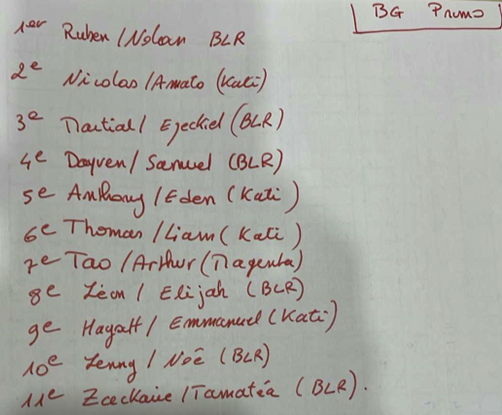 BG Promo
1er Ruben / Nolan BLR
2e Nicolas / Amato (Kati)
3e Martial / Ezeckiel (BLR)
4e Dayven / Samuel (BLR)
5e Anthony / Eden (Kati)
6e Thomas / Liam (Kati)
7e Tao / Arthur (Magenta)
8e Léon / Elijah (BLR)
9e Hayatt / Emmanuel (Kati)
10e Lenny / Noë (BLR)
11e Zackaire / Tamatéa (BLR).